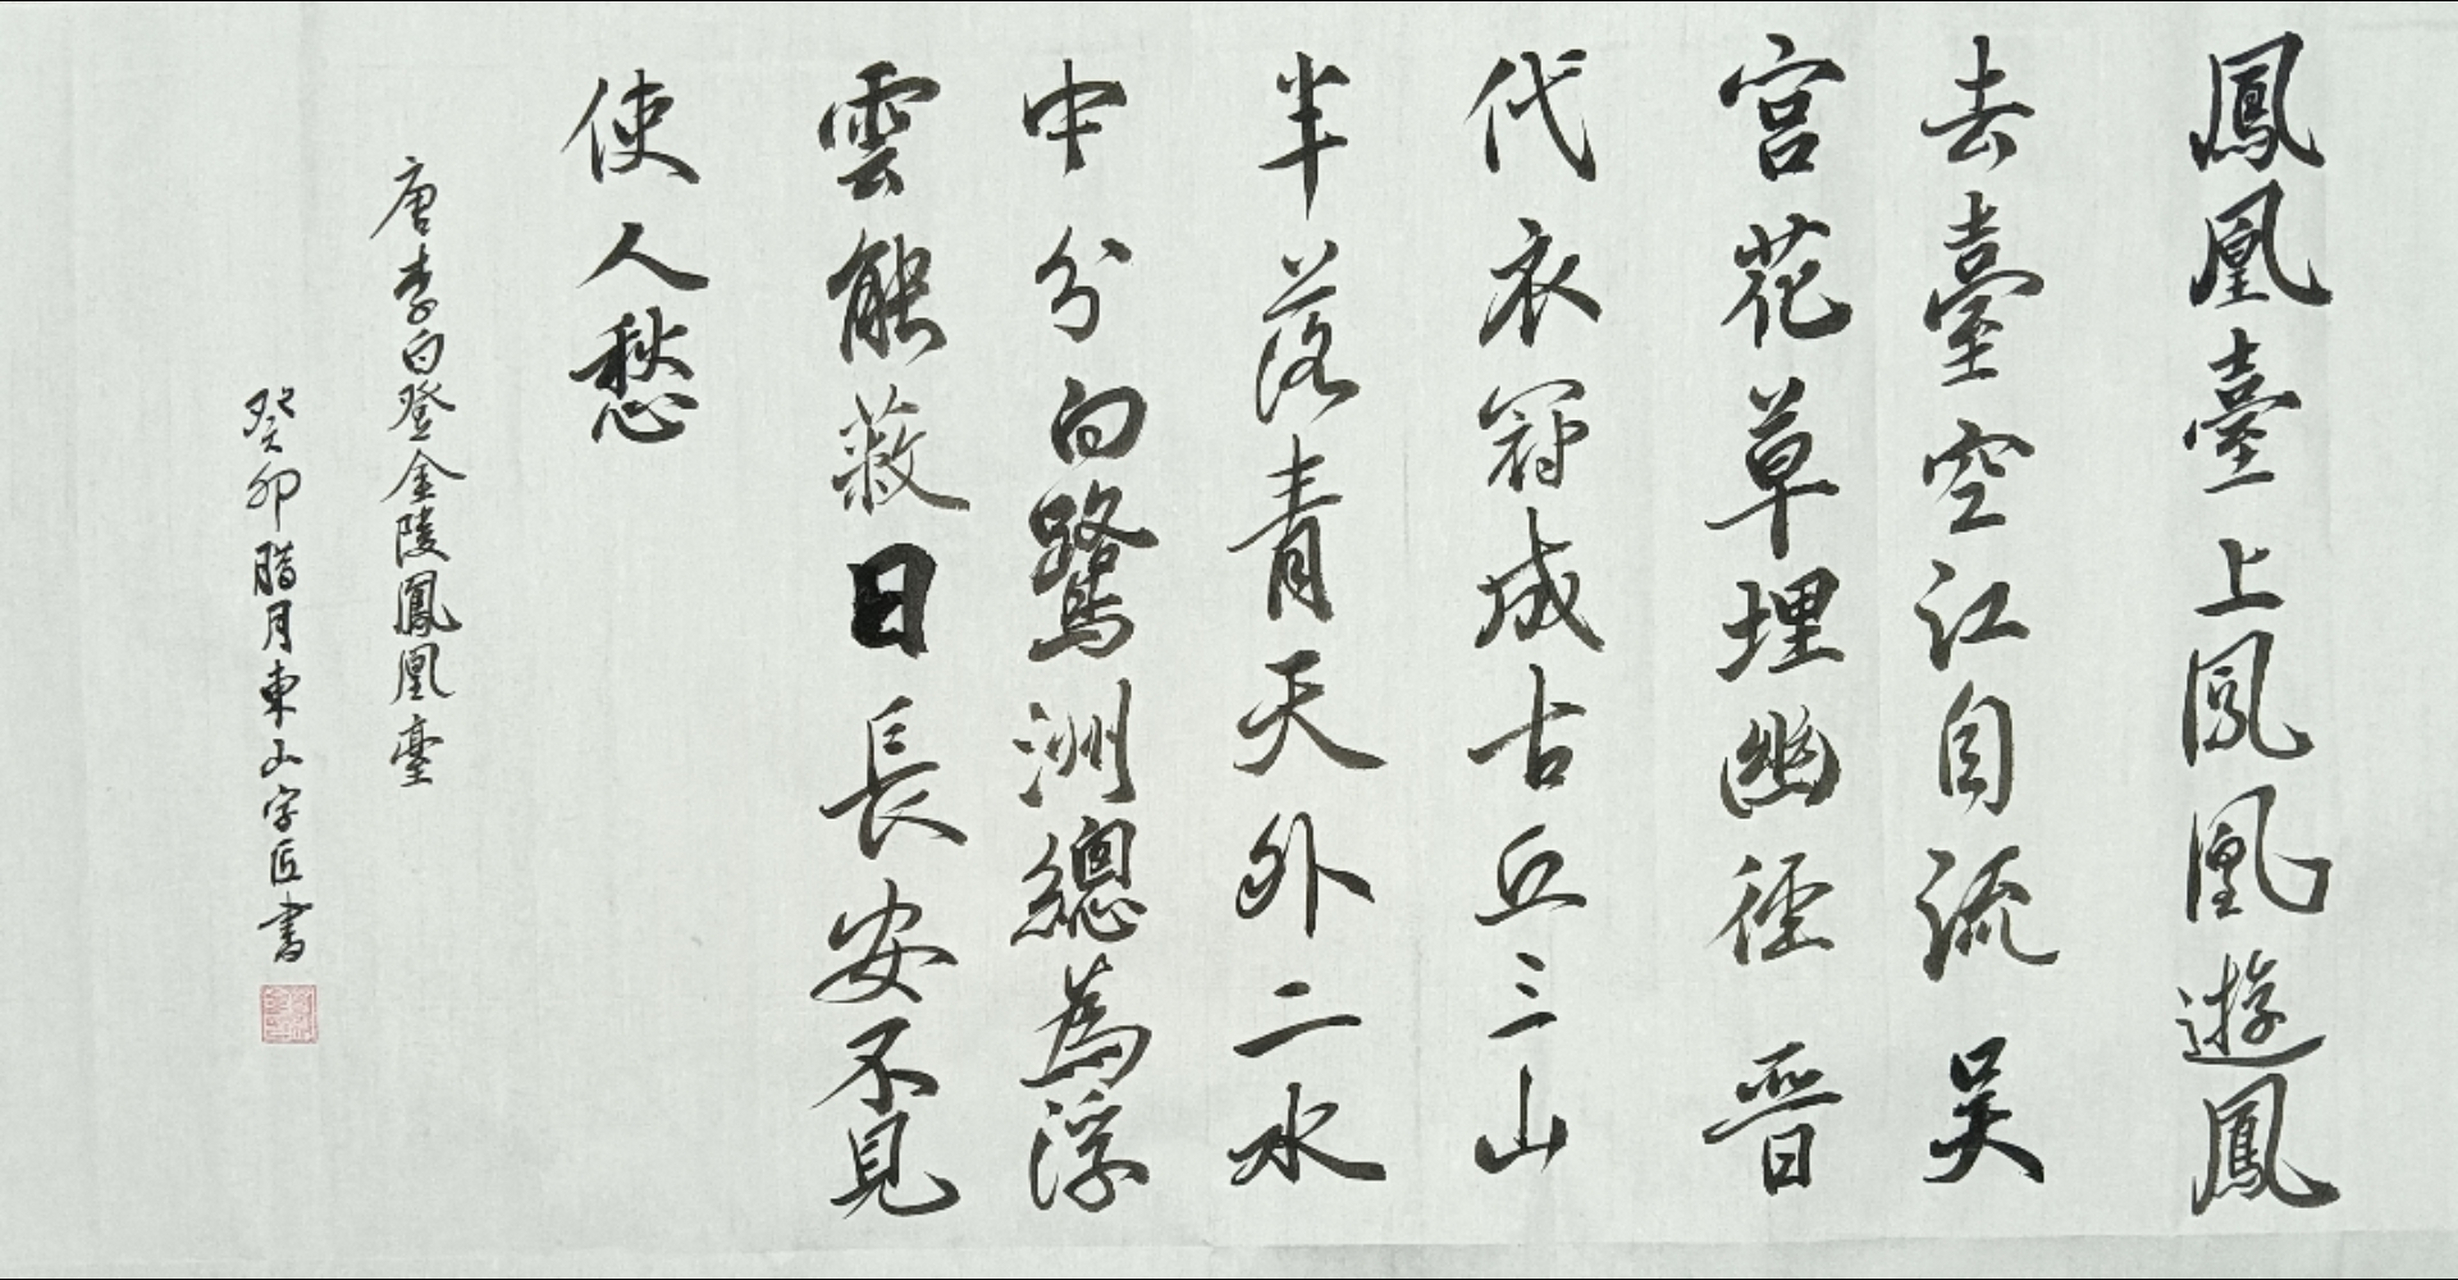 鳳凰臺上鳳凰遊鳳
去臺空江自流吳
宮花草埋幽徑晉
代衣冠成古丘三山
半落青天外二水
中分白鷺洲總為浮
雲能蔽日長安不見
使人愁
唐李白登金陵鳳凰臺
癸卯腊月東山字匠書